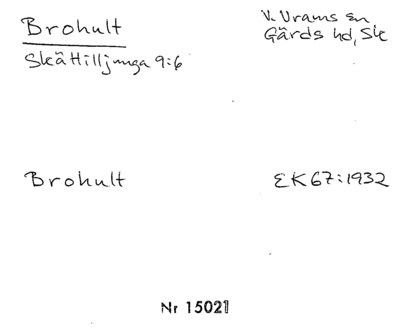 Brohult
V. Vrams sn
Gärds hd, Sk
Skättilljunga 9:6
Brohult
EK67:1932
Nr 15021